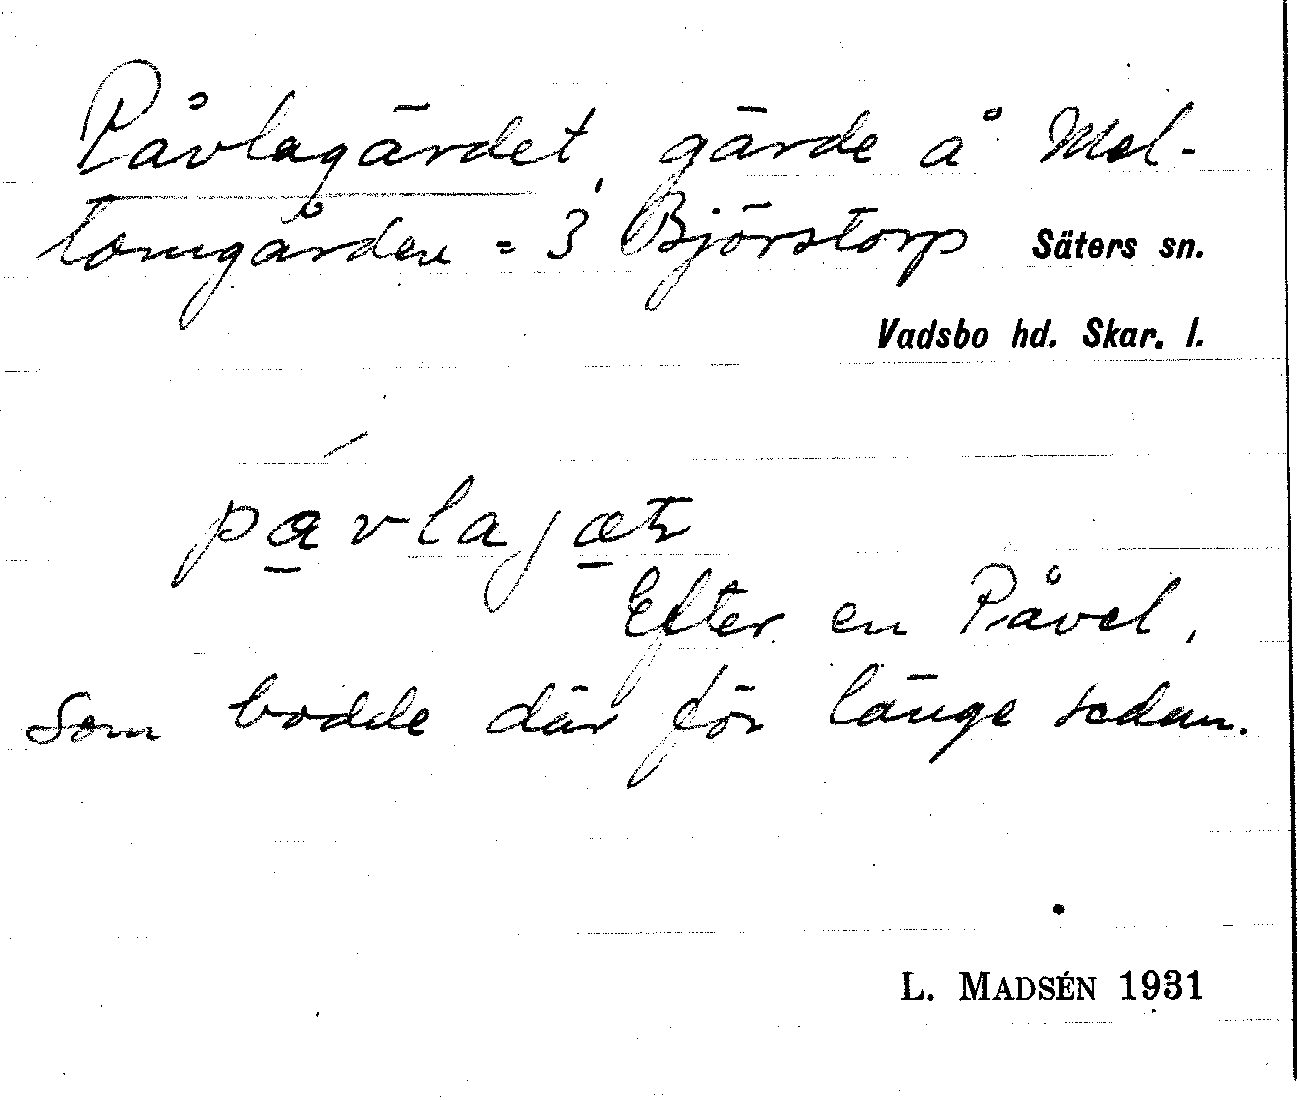 Påvlagärdet, gärde å Mel-
lomgården = 3 Björstorp Säters sn.
Vadsbo hd. Skar. l.
påvlajæt
Efter en Påvel,
som bodde där för länge sedan.
L. MADSÉN 1931